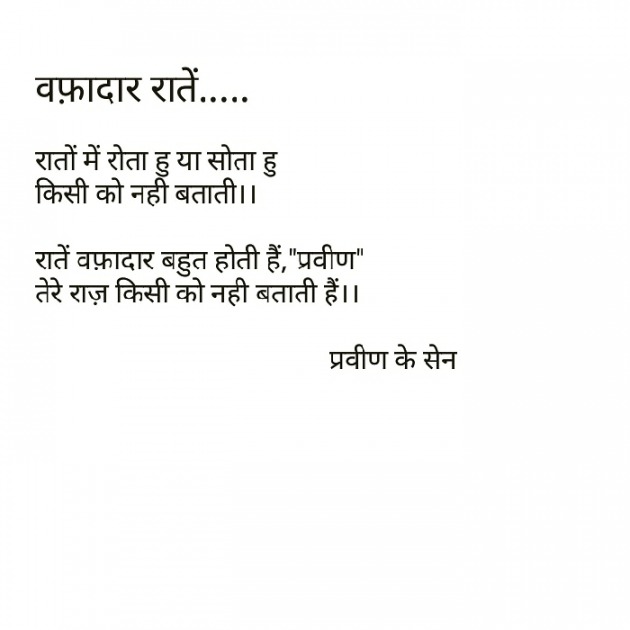 वफ़ादार रातें.....
रातों में रोता हु या सोता हु
किसी को नही बताती।।
रातें वफ़ादार बहुत होती हैं,"प्रवीण"
तेरे राज़ किसी को नही बताती हैं।।
प्रवीण के सेन